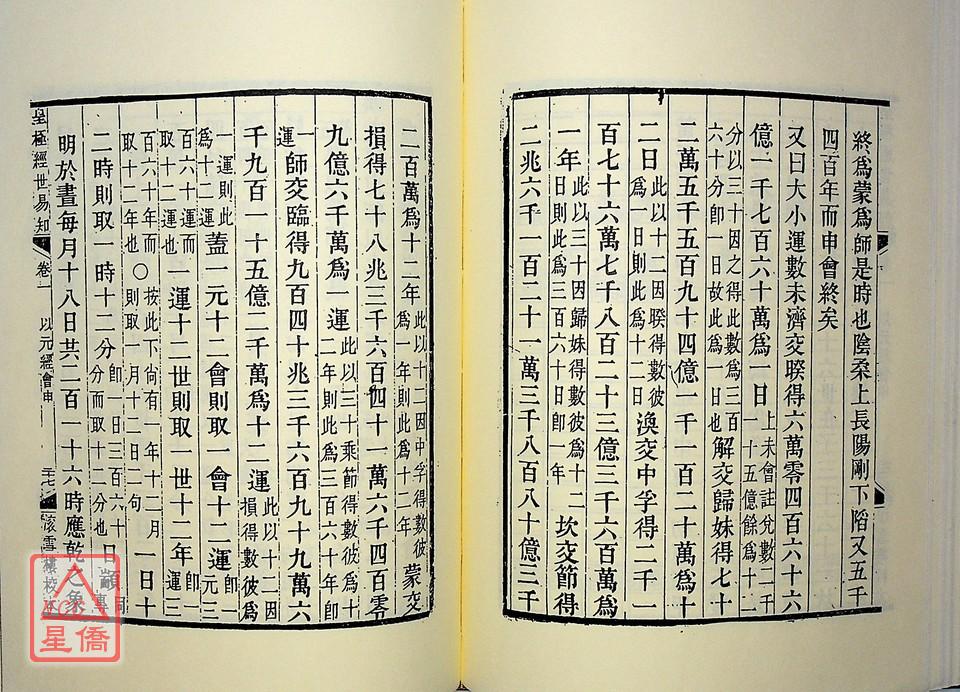 終爲蒙爲師是時也陰柔上長陽剛下陷又五千
四百年而申會終矣
又曰大小運數未濟交睽得六萬零四百六十六
億一千七百六十萬爲一日上未會註兌數二千一十五億餘爲十一
分以三十因之得此數爲三百六十分卽一日故此爲一日也解交歸妹得七十
二萬五千五百九十四億一千一百二十萬爲十
二日此以十二因睽得數彼爲一日則此爲十二日渙交中孚得二千一
百七十六萬七千八百二十三億三千六百萬爲
一年此以三十乘歸妹得數彼爲十二日則此爲三百六十日卽一年坎交節得
二兆六千一百二十一萬三千八百八十億三千
二百萬爲十二年此以十二因中孚得數彼爲一年則此爲十二年蒙交
損得七十八兆三千六百四十一萬六千四百零
九億六千萬爲一運此以三十乘節得數彼爲十二年則此爲三百六十年卽一
運師交臨得九百四十兆三千六百九十九萬六
千九百一十五億二千萬爲十二運此以十二因損得數彼爲
一運則此爲十二運蓋一元十二會則取一會十二運卽一元三
百六十運而取十二運也一運十二世則取一世十二年卽一運三
百六十年而取十二年也○按此下尚有一年十二月則取一月十二日二句一日十
二時則取一時十二分卽一日三百六十分而取十二分也日顓同專
明於晝每月十八日共二百一十六時應乾之象
皇極經世易知
卷一
以元經會申